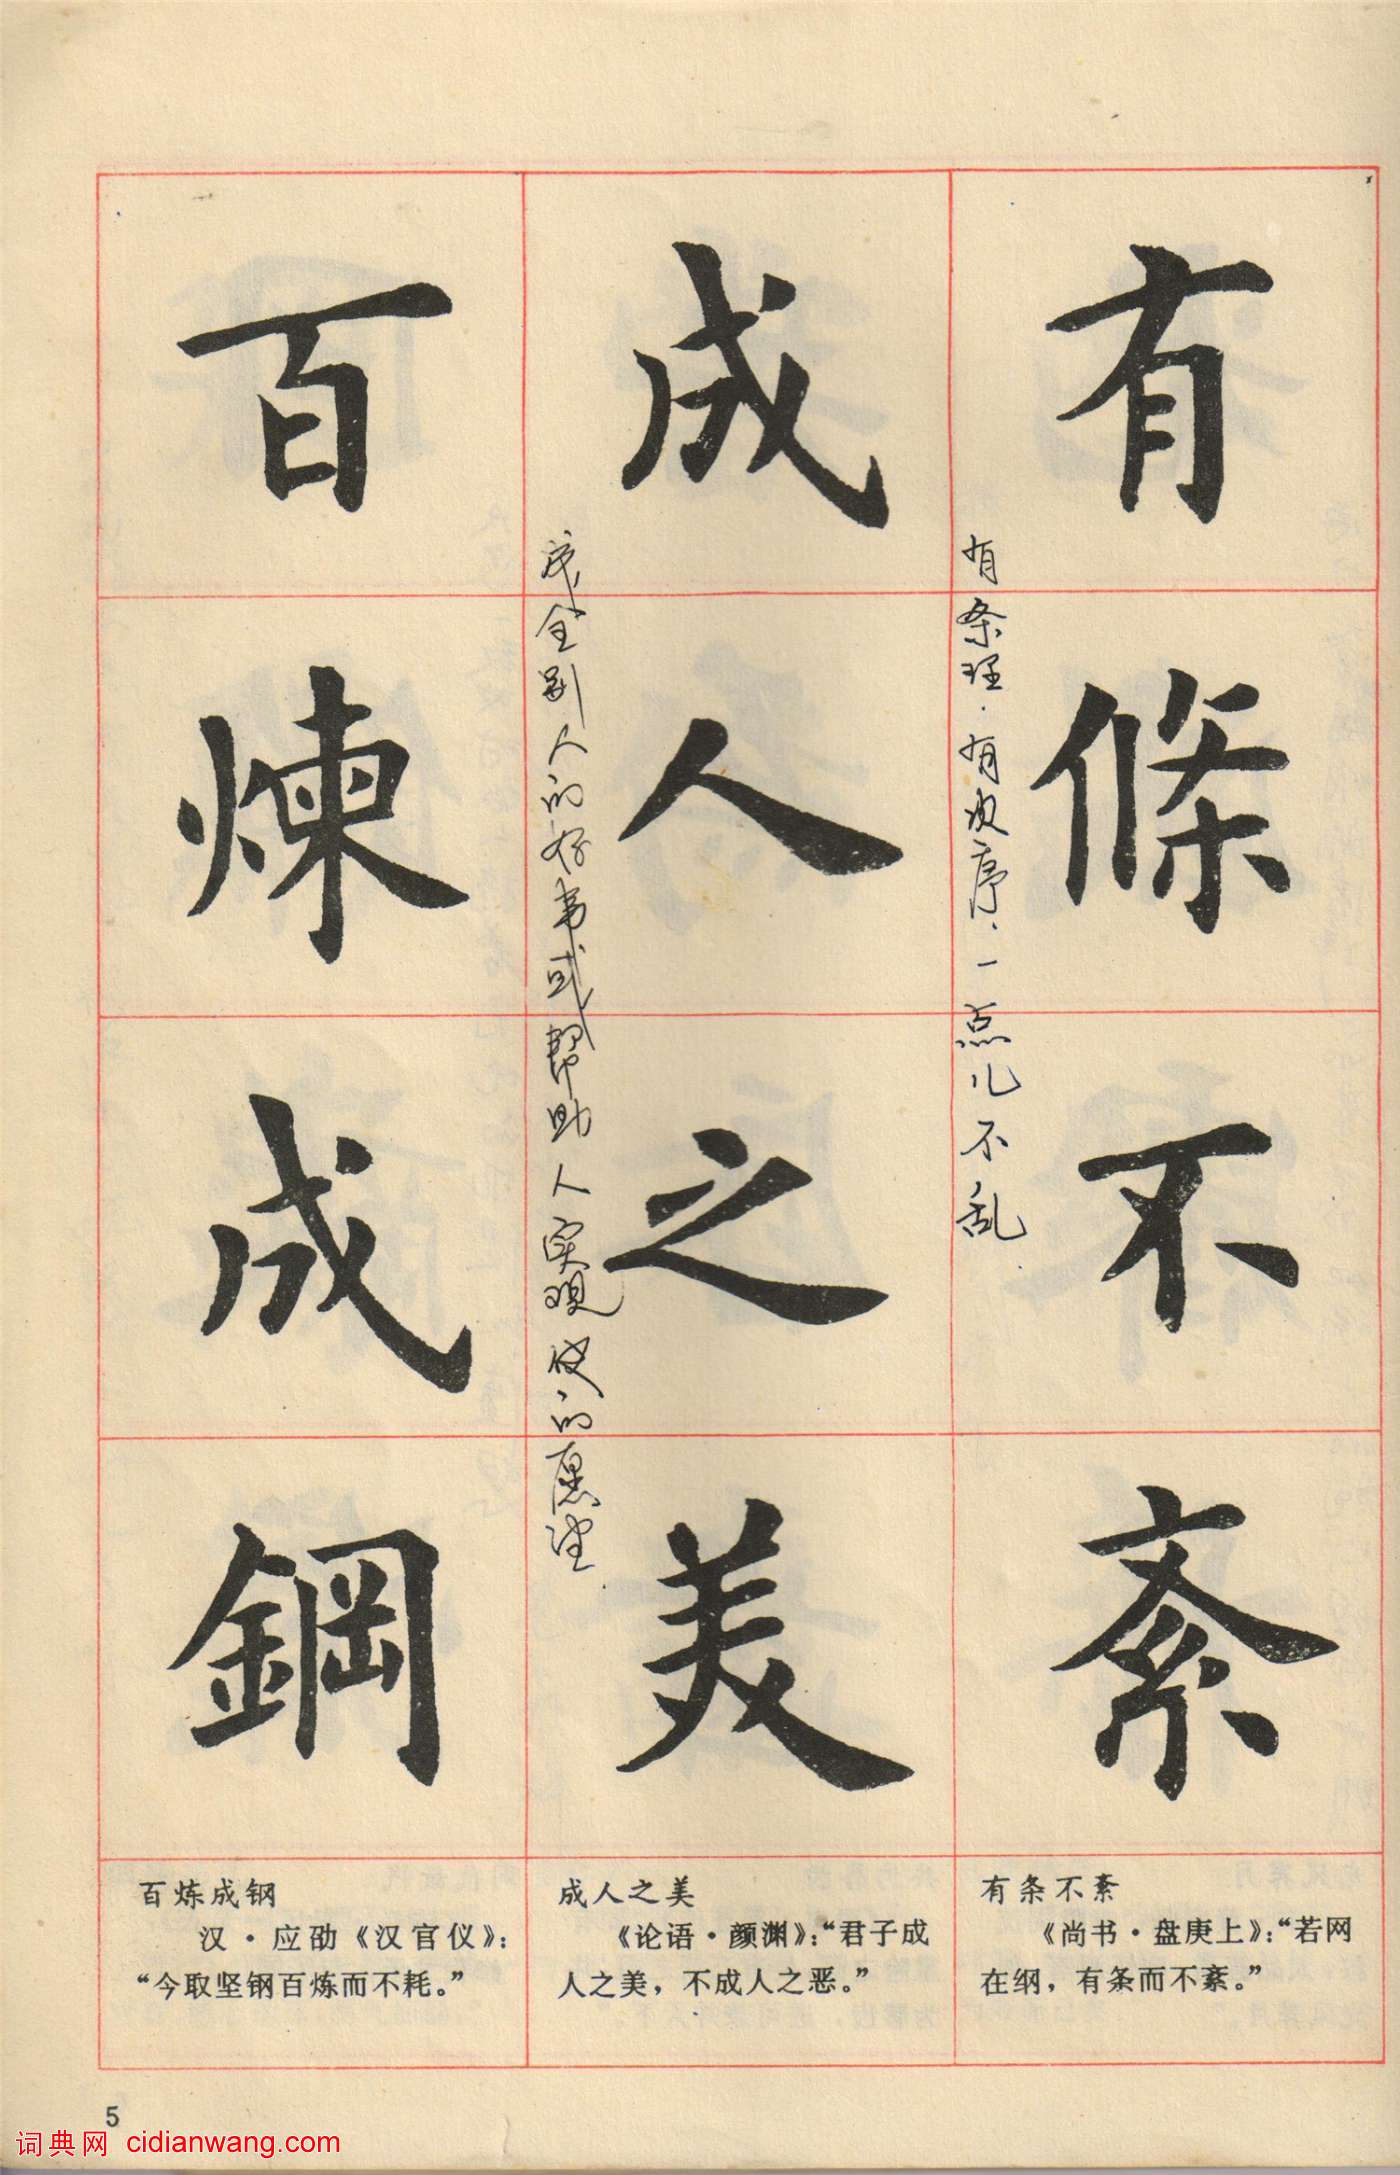 有條不紊
有条理.有次序.一点儿不乱
成人之美
成全别人的好事或帮助人实现他的愿望
百煉成鋼
有条不紊
《尚书·盘庚上》:“若网
在纲，有条而不紊。”
成人之美
《论语·颜渊》:“君子成
人之美，不成人之恶。”
百炼成钢
汉·应劭《汉官仪》:
“今取坚钢百炼而不耗。”
5
词典网 cidianwang.com